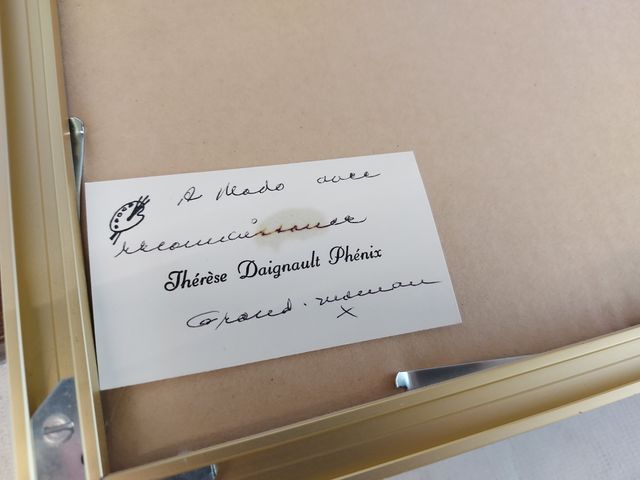 A Mado avec
reconnaissance
Thérèse Daignault Phénix
Grand-maman
x